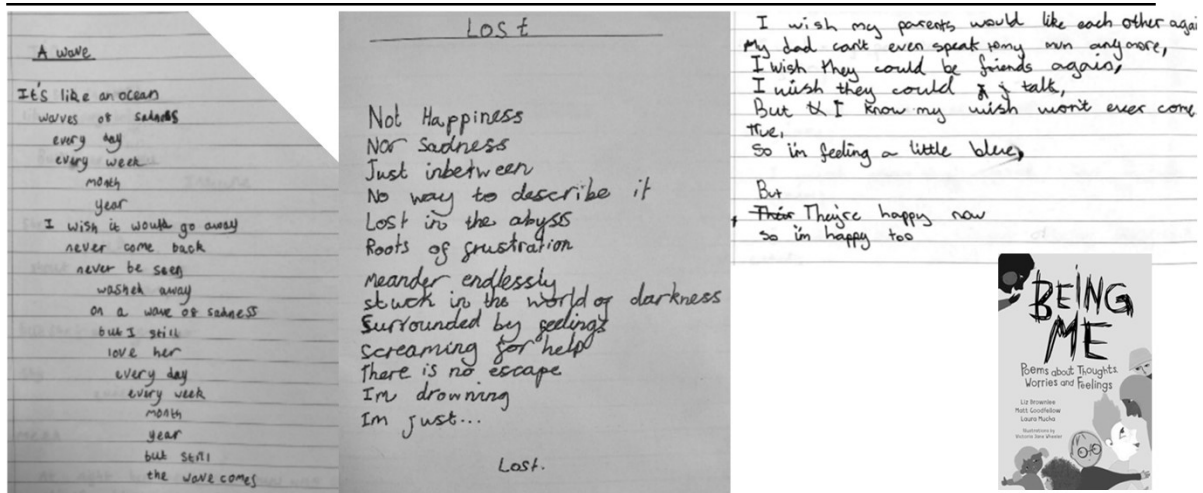 A wave
It's like an ocean
waves of sadness
every day
every week
month
year
I wish it would go away
never come back
never be seen
washed away
on a wave of sadness
but I still
love her
every day
every week
month
year
but still
the wave comes
Lost
Not Happiness
Nor Sadness
Just inbetween
No way to describe it
Lost in the abyss
Roots of frustration
meander endlessly
stuck in the world of darkness
Surrounded by feelings
screaming for help
There is no escape
Im drowning
Im just...
Lost.
I wish my parents would like each other agai
My dad can't even speak to my mum anymore,
I wish they could be friends again,
I wish they could talk,
But I know my wish won't ever come
true,
So i'm feeling a little blue,
But
Their They're happy now
so i'm happy too
BEING
ME
Poems about Thoughts,
Worries and Feelings
Liz Brownlee
Matt Goodfellow
Laura Mucha
Illustrations by
Victoria Jane Wheeler